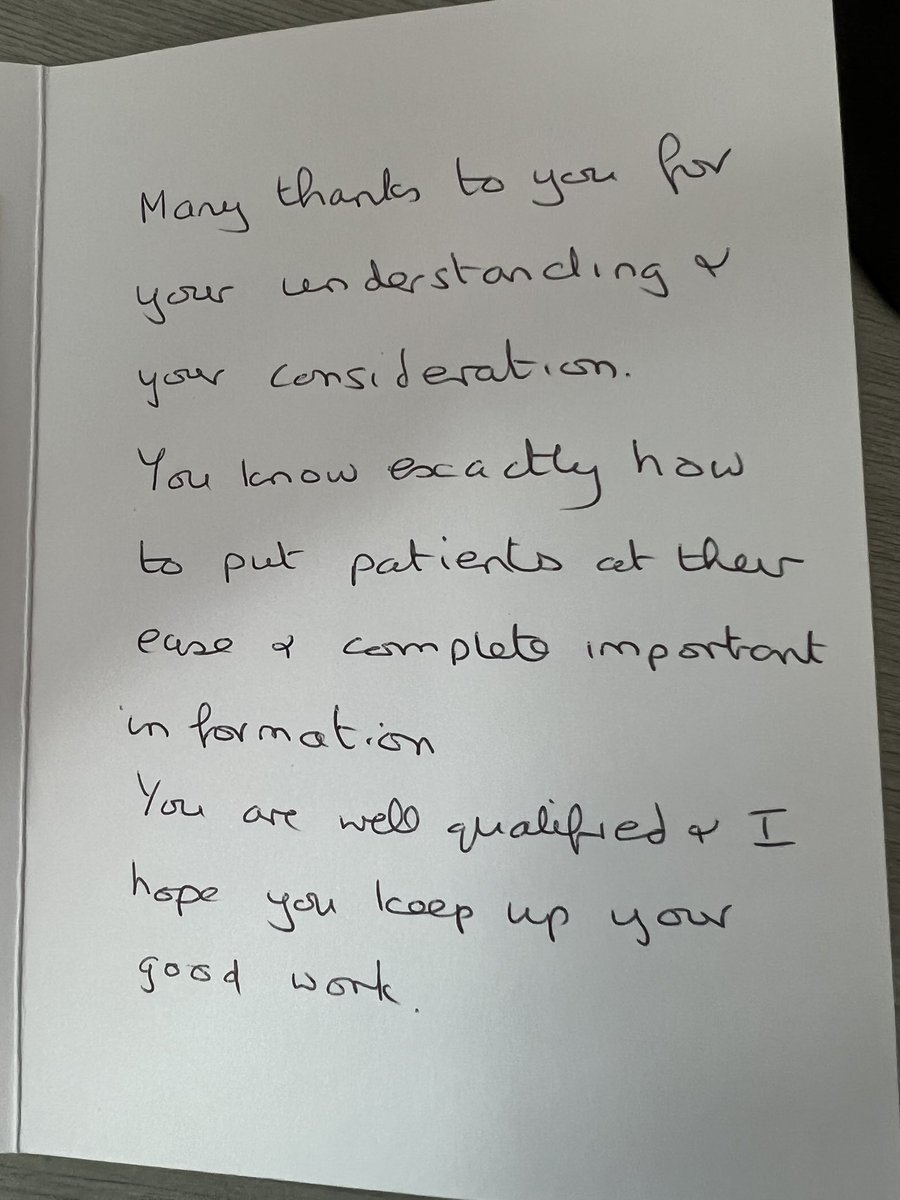 Many thanks to you for
your understanding &
your consideration.
You know exactly how
to put patients at their
ease & complete important
information
You are well qualified & I
hope you keep up your
good work.